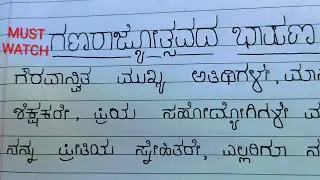 MUST
WATCH
ಗಣರಾಜ್ಯೋತ್ಸವದ ಭಾಷಣ
ಗೌರವಾನ್ವಿತ ಮುಖ್ಯ ಅತಿಥಿಗಳೇ, ಮಾನ
ಶಿಕ್ಷಕರೇ, ಪ್ರಿಯ ಸಹೋದ್ಯೋಗಿಗಳೇ ಮ
ನನ್ನ ಪ್ರೀತಿಯ ಸ್ನೇಹಿತರೇ, ಎಲ್ಲರಿಗೂ ನ